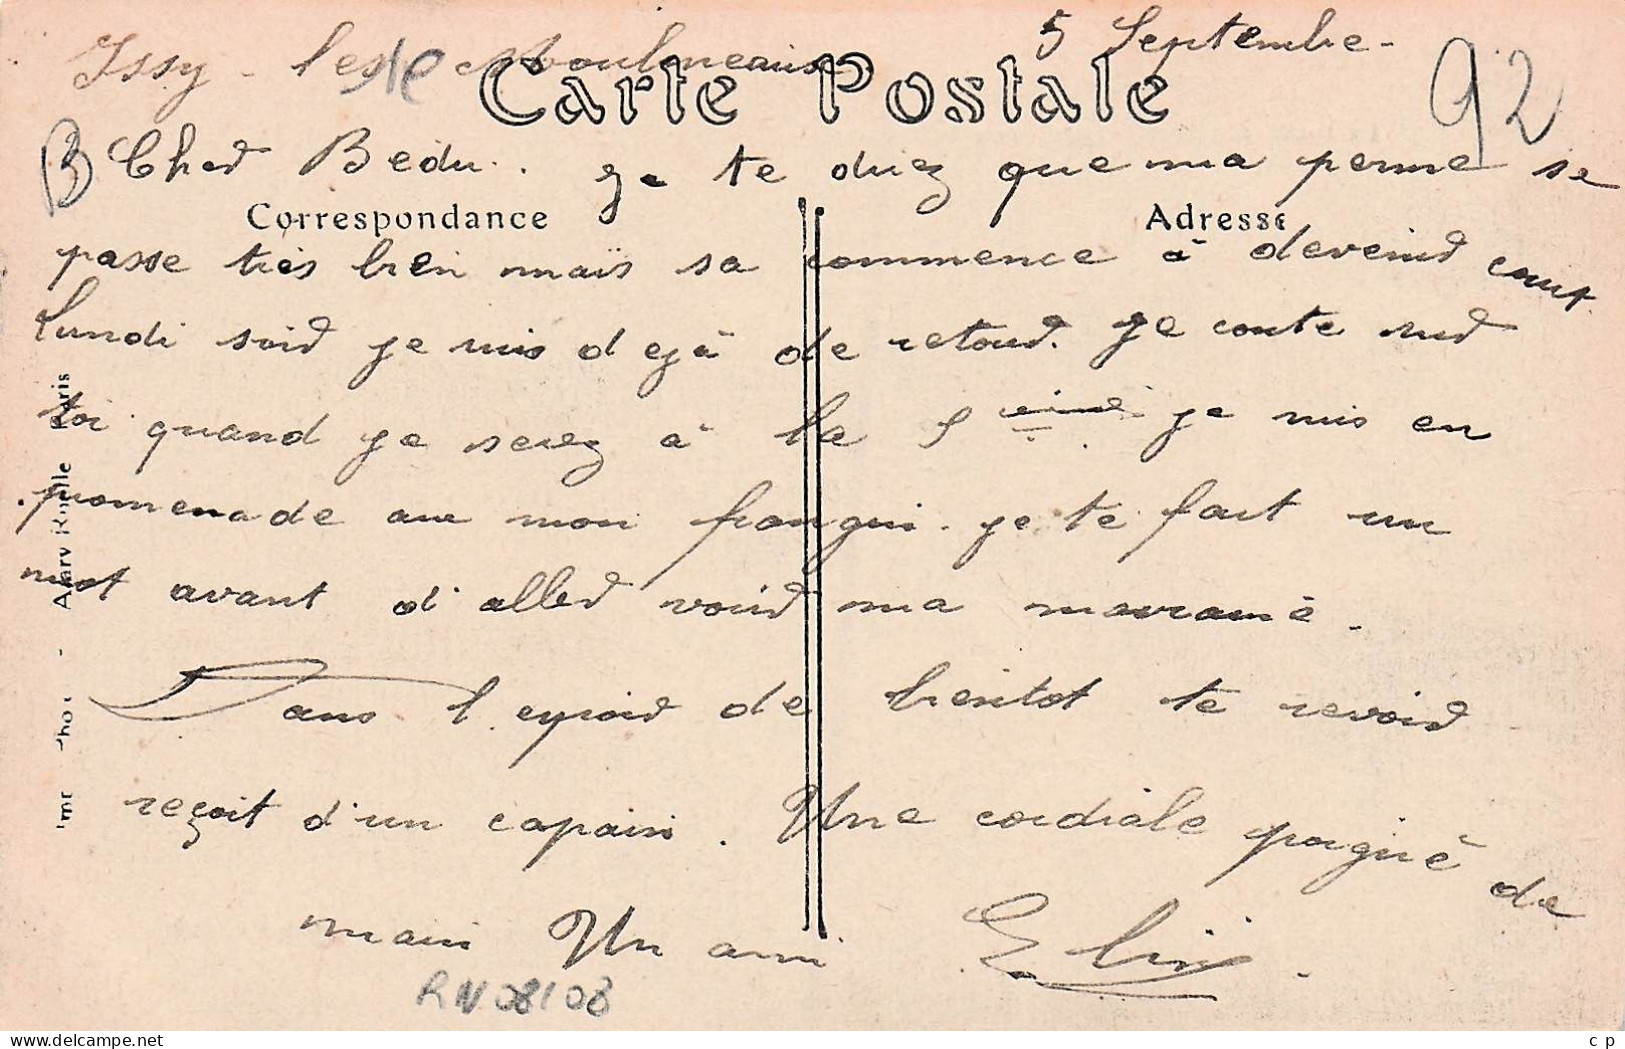 Issy - les Moulineaux 5 Septembre -
Carte Postale
92
B
Cher Bedu. Je te direz que ma perme se
Correspondance Adresse
passe très bien mais sa commence à devenir court
Lundi soir je suis dejà de retour. Je conte sur
toi quand je serez à la je suis en
promenade avec mon frangin. je te fait un
mot avant d'aller voir ma
Dans l'espoir de bientot te revoir
reçoit d'un copain. Une cordiale poigné de
main Un ami
RN 08/08
Paris
delcampe.net
c p